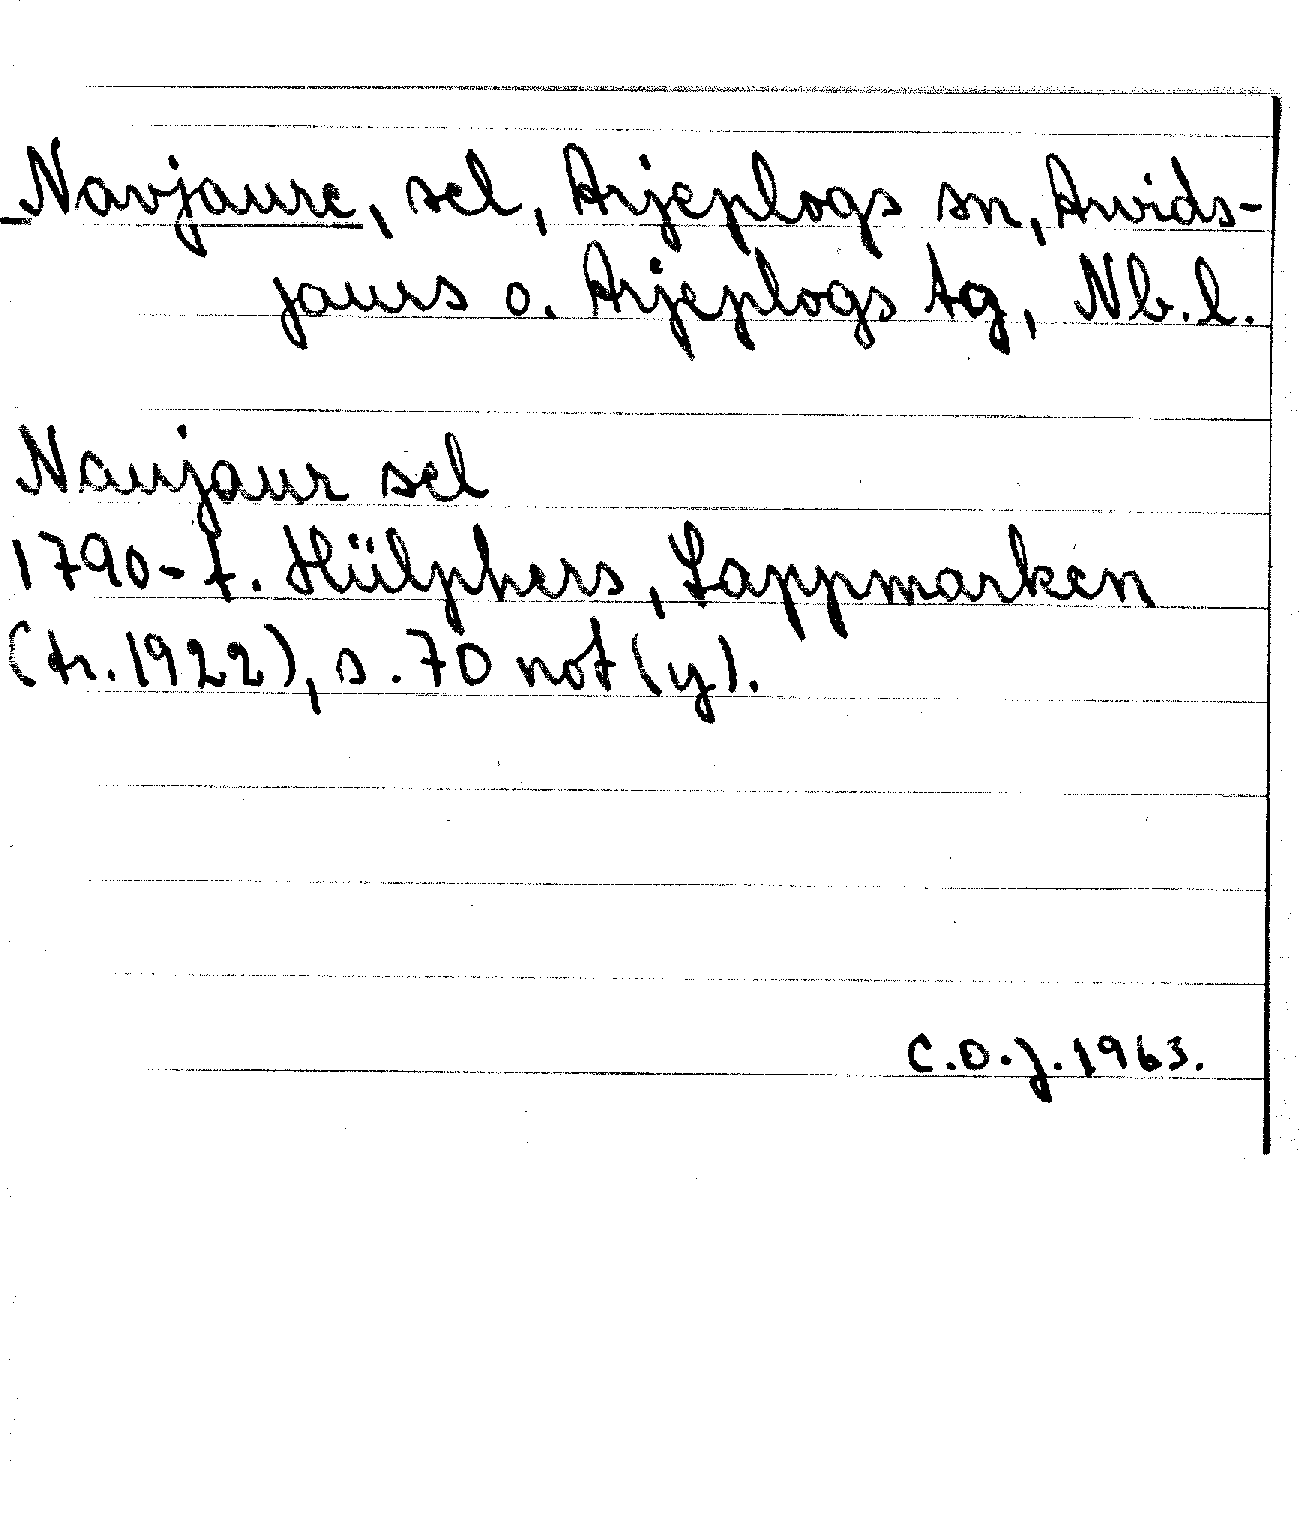 Navjaure, sel, Arjeplogs sn, Arvids-
jaurs o. Arjeplogs tg, Nb. l.
Naujaur sel
1790-t. Hülphers, Lappmarken
(tr. 1922), s. 70 not (y).
C.O.J. 1963.